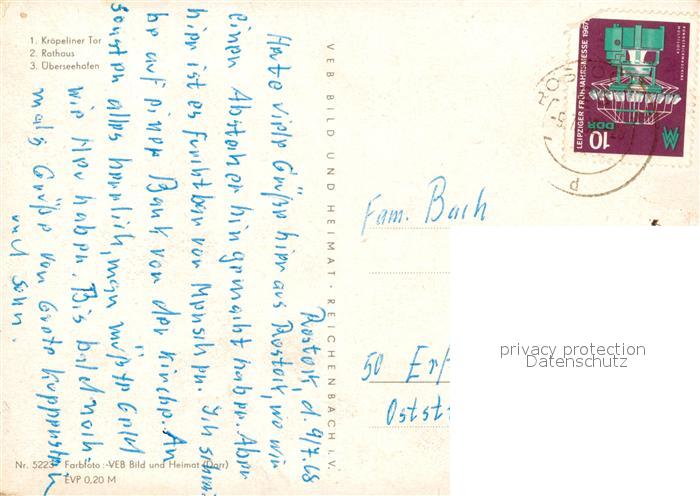 1. Kröpeliner Tor
2. Rathaus
3. Überseehafen
VEB BILD UND HEIMAT · REICHENBACH i. V.
LEIPZIGER FRÜHJAHRSMESSE 1967
DDR
10
Rostock, d. 9/7.68
Herte viele Grüße hier aus Rostock, wo wir
einen Abstecher hingemacht haben. Aber
hier ist es furchtbar von Menschen. Ich schrei
be auf einer Bank vor der Kirche. An
sonsten alles herrlich, man müßte Geld
wie Heu haben. Bis bald noch-
mals Grüße von Grete
und Sohn.
Fam. Bach
50 Erf
Oststr
privacy protection
Datenschutz
Nr. 5223 Farbfoto: VEB Bild und Heimat (Darr)
EVP 0,20 M